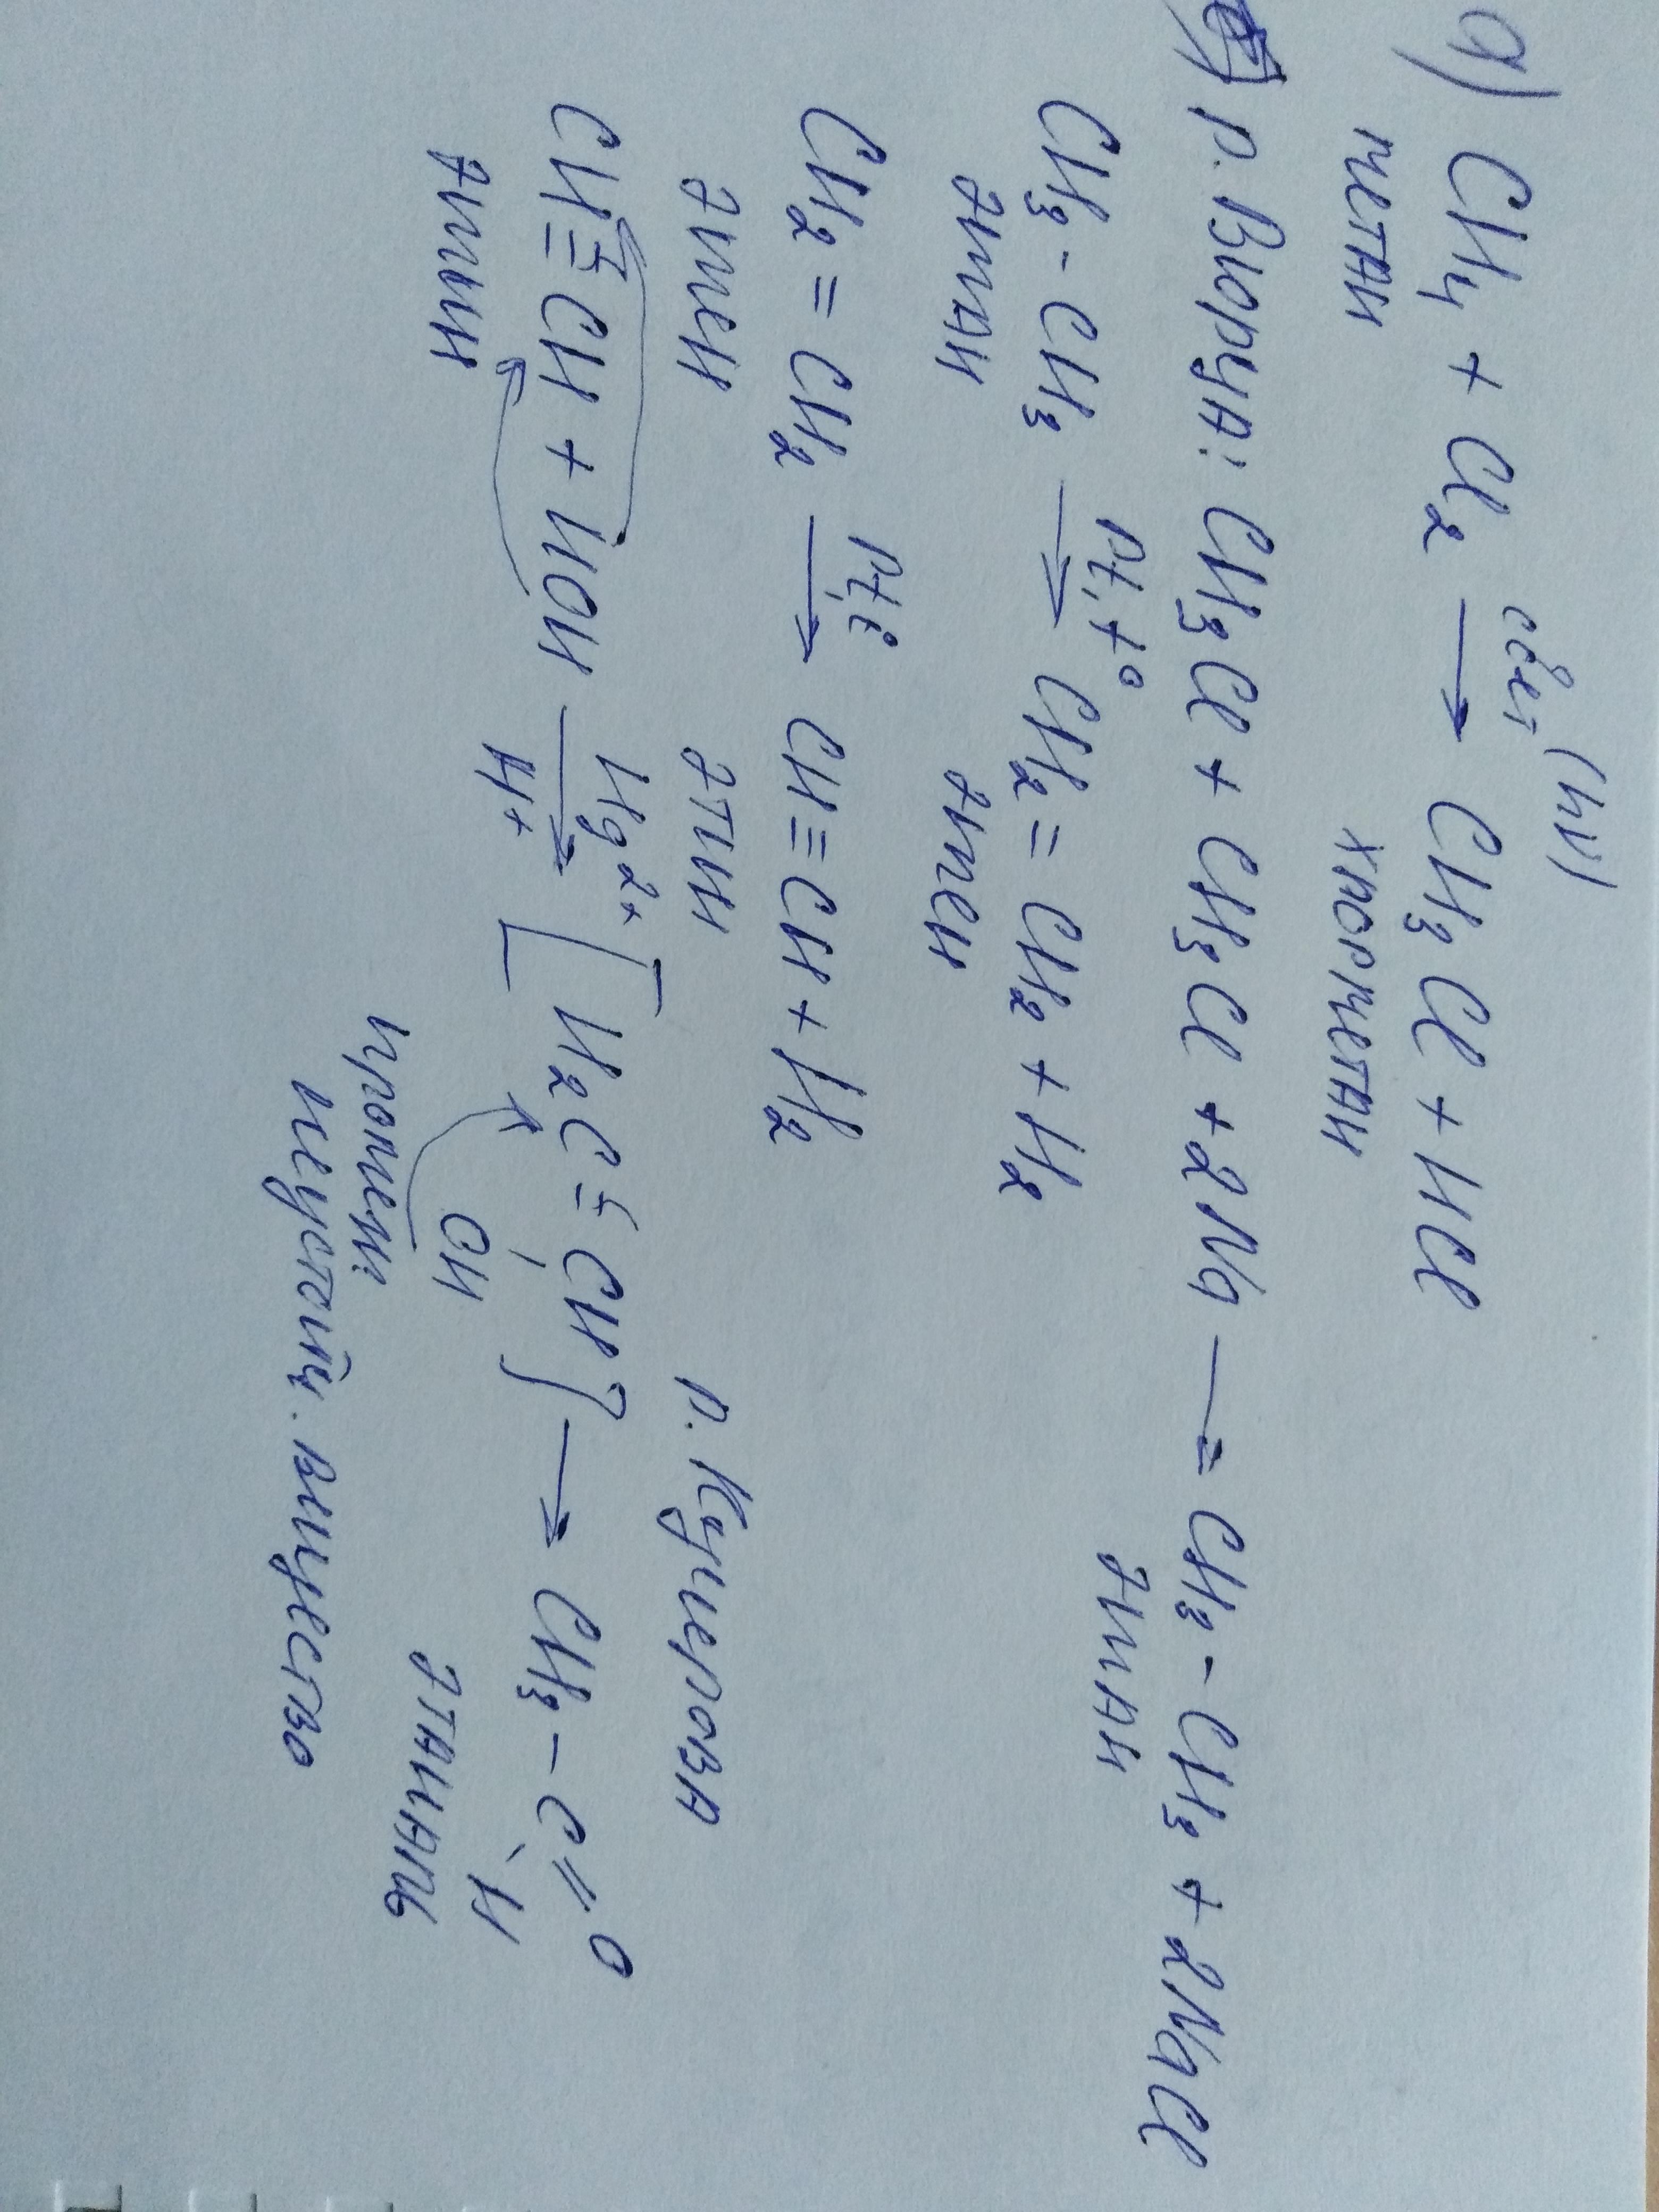 а) CH₄ + Cl₂ → свет (hν) CH₃Cl + HCl
метан хлорметан
р. Вюрца: CH₃Cl + CH₃Cl + 2Na → CH₃-CH₃ + 2NaCl
этан
CH₃-CH₃ → Pt, t° CH₂=CH₂ + H₂
этан этен
CH₂=CH₂ → Pt, t° CH≡CH + H₂
этен этин
р. Кучерова
CH≡CH + HOH → Hg²⁺ H⁺ [H₂C=CH] → CH₃-C=O
OH H
этин этаналь
промеш.
неустойч. вещество